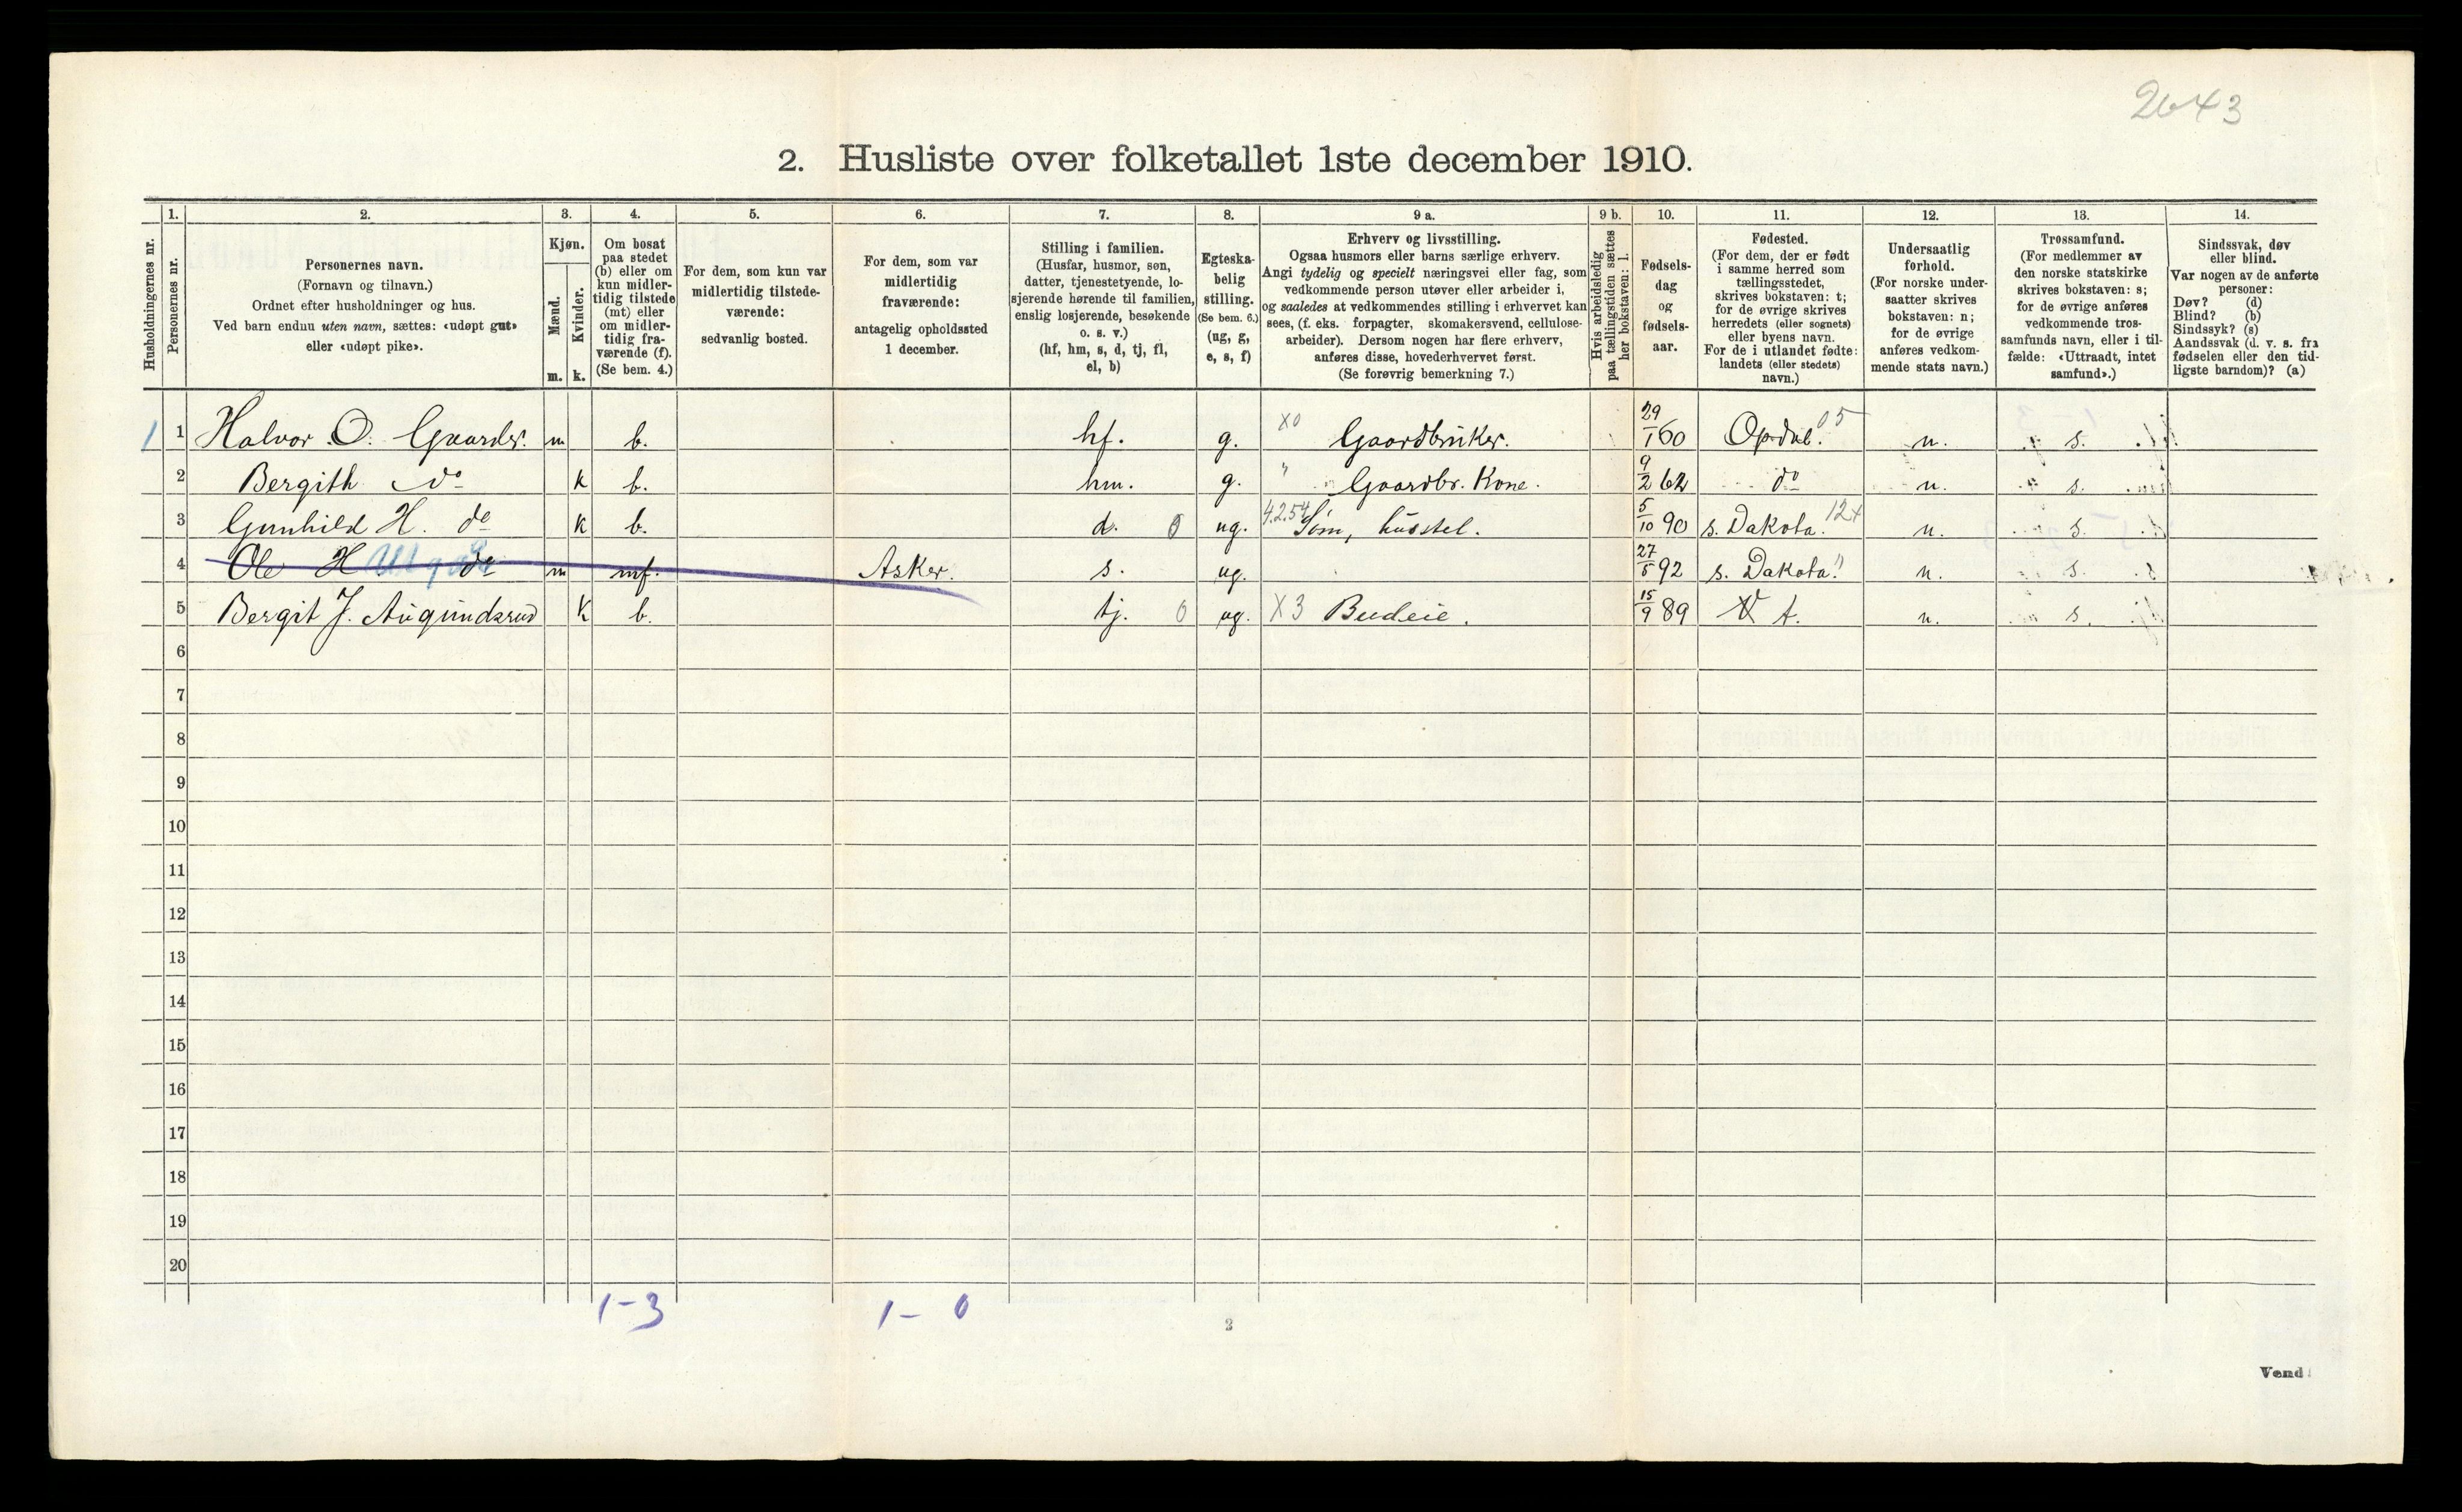 2643
2. Husliste over folketallet 1ste december 1910.
Husholdningernes nr.
1.
Personernes nr.
2.
Personernes navn.
(Fornavn og tilnavn.)
Ordnet efter husholdninger og hus.
Ved barn endnu uten navn, sættes: «udøpt gut»
eller «udøpt pike».
3.
Kjøn.
Mænd.
Kvinder.
m. k.
4.
Om bosat
paa stedet
(b) eller om
kun midler-
tidig tilstede
(mt) eller
om midler-
tidig fra-
værende (f).
(Se bem. 4.)
5.
For dem, som kun var
midlertidig tilstede-
værende:
sedvanlig bosted.
6.
For dem, som var
midlertidig
fraværende:
antagelig opholdssted
1 december.
7.
Stilling i familien.
(Husfar, husmor, søn,
datter, tjenestetyende, lo-
sjerende hørende til familien,
enslig losjerende, besøkende
o. s. v.)
(hf, hm, s, d, tj, fl,
el, b)
8.
Egteska-
belig
stilling.
(Se bem. 6.)
(ug, g,
e, s, f)
9 a.
Erhverv og livsstilling.
Ogsaa husmors eller barns særlige erhverv.
Angi tydelig og specielt næringsvei eller fag, som
vedkommende person utøver eller arbeider i,
og saaledes at vedkommendes stilling i erhvervet kan
sees, (f. eks. forpagter, skomakersvend, cellulose-
arbeider). Dersom nogen har flere erhverv,
anføres disse, hovederhvervet først.
(Se forøvrig bemerkning 7.)
9 b.
Hvis arbeidsledig
paa tællingstiden sættes
her bokstaven: l.
10.
Fødsels-
dag
og
fødsels-
aar.
11.
Fødested.
(For dem, der er født
i samme herred som
tællingsstedet,
skrives bokstaven: t;
for de øvrige skrives
herredets (eller sognets)
eller byens navn.
For de i utlandet fødte:
landets (eller stedets)
navn.)
12.
Undersaatlig
forhold.
(For norske under-
saatter skrives
bokstaven: n;
for de øvrige
anføres vedkom-
mende stats navn.)
13.
Trossamfund.
(For medlemmer av
den norske statskirke
skrives bokstaven: s;
for de øvrige anføres
vedkommende tros-
samfunds navn, eller i til-
fælde: «Uttraadt, intet
samfund».)
14.
Sindssvak, døv
eller blind.
Var nogen av de anførte
personer:
Døv? (d)
Blind? (b)
Sindssyk? (s)
Aandssvak (d. v. s. fra
fødselen eller den tid-
ligste barndom)? (a)
1 1 Halvor O. Gaarder. m b. hf. g. X0 Gaardbruker. 29/1 60 Opdal. 05 n. s.
2 Bergith do k b. hm. g. " Gaardbr. Kone. 9/2 62 do n. s.
3 Gunhild H. do k b. d. 0 ug. 4.2.54 Søm, husstel. 5/10 90 s. Dakota. 12+ n. s.
4 Ole H do m mf. Asker. s. ug. 27/5 92 s. Dakota. " n. s.
5 Bergit J. Augundsrud k b. tj. 0 ug. X3 Budeie. 15/9 89 t. n. s.
6
7
8
9
10
11
12
13
14
15
16
17
18
19
20
1-3 1-0
2
Vend!